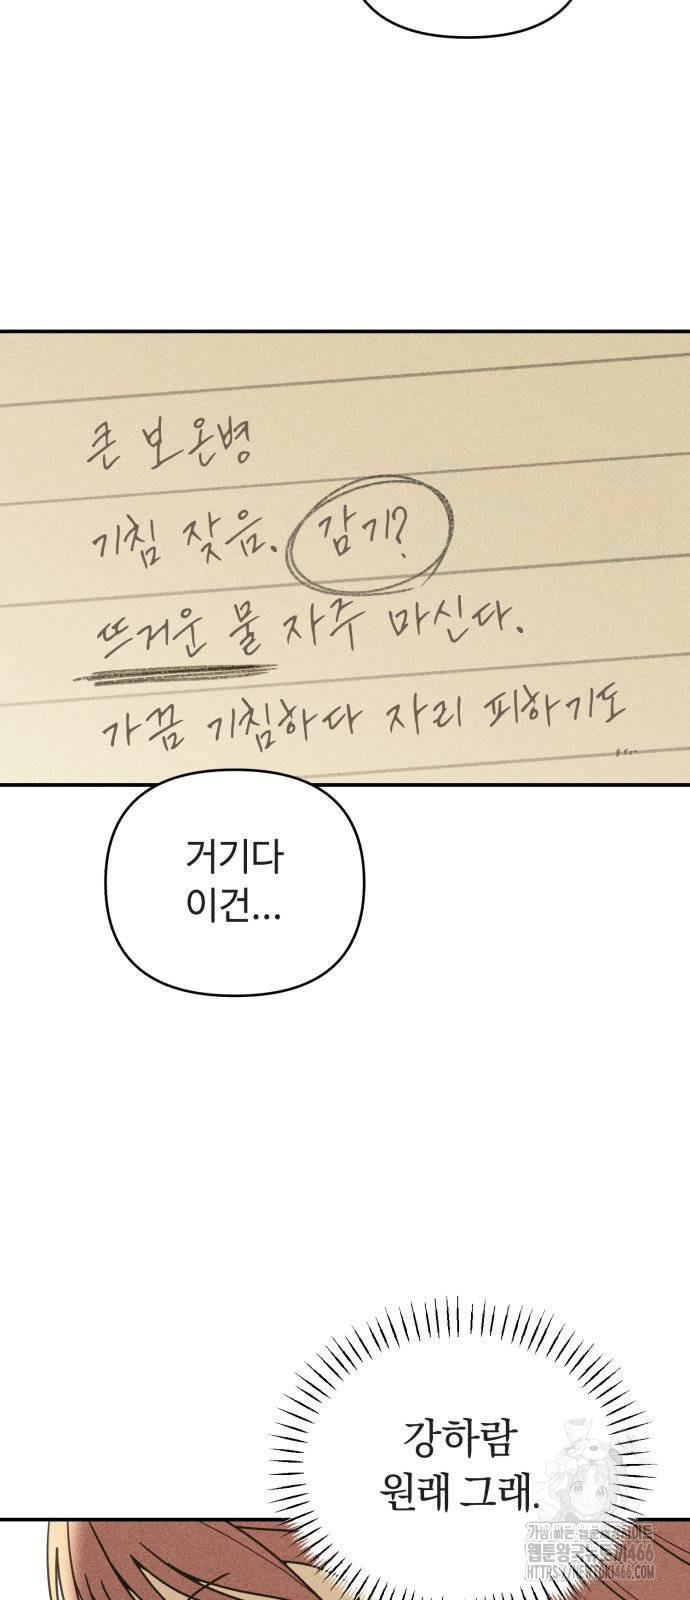 큰 보온병
기침 잦음. 감기?
뜨거운 물 자주 마신다.
가끔 기침하다 자리 피하기도
....
거기다
이건...
강하람
원래 그래.
가장 빠른 웹툰사이트
웹툰왕국뉴토끼466
HTTPS://NEWTOKI466